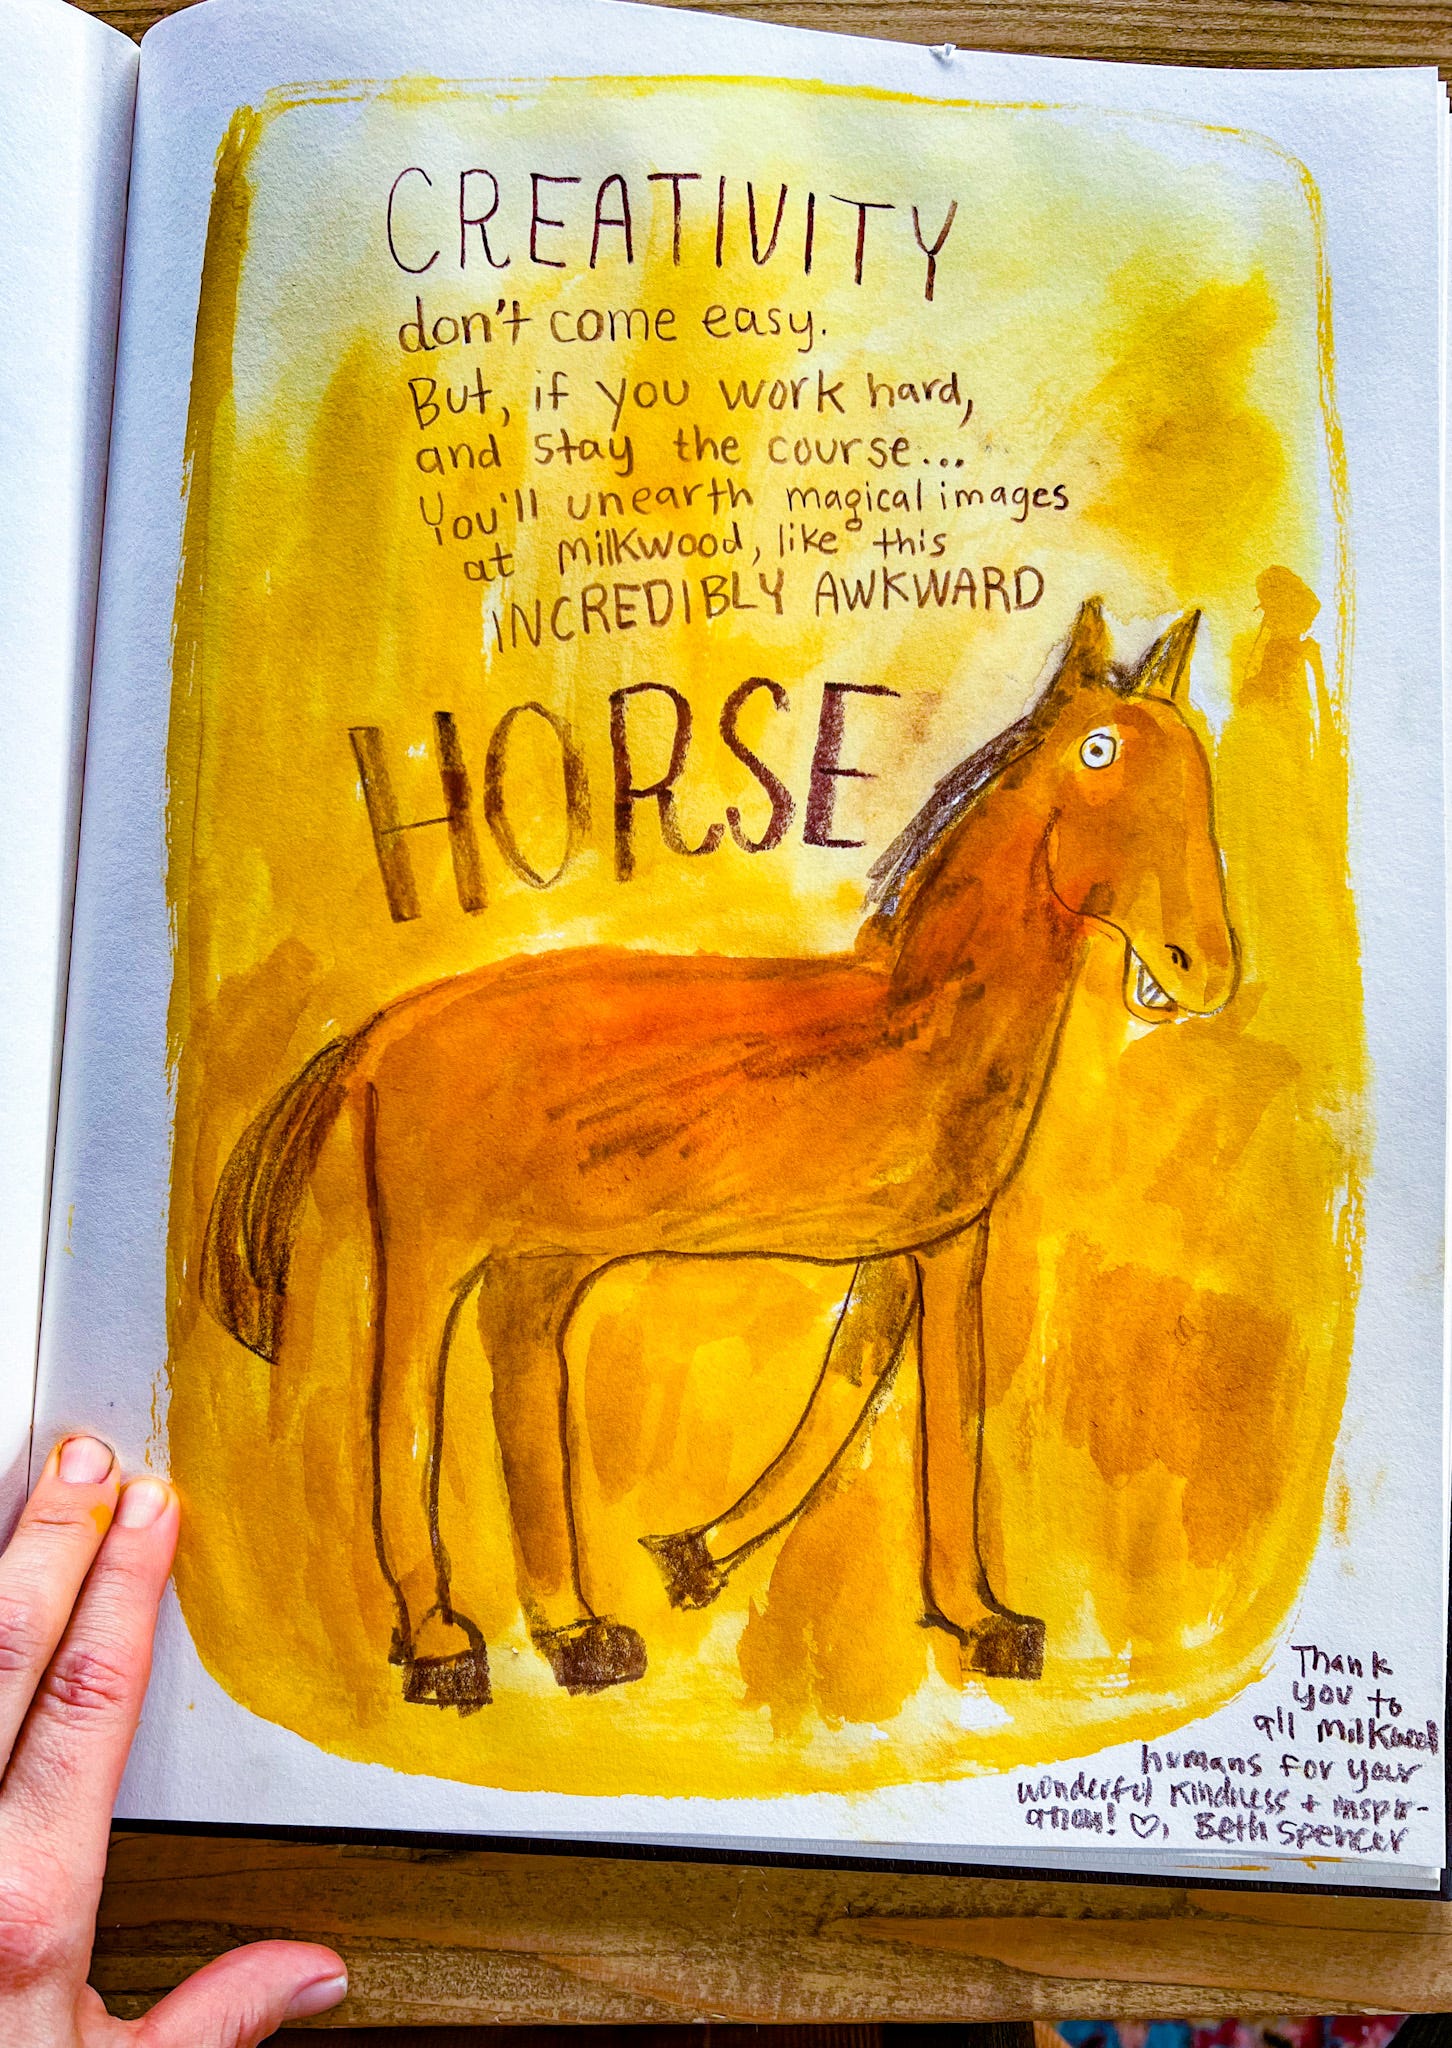 CREATIVITY
don't come easy.
But, if you work hard,
and stay the course...
You'll unearth magical images
at Milkwood, like this
INCREDIBLY AWKWARD
HORSE
Thank
you to
all Milkwood
humans for your
wonderful kindness + inspir-
ation! ♡, Beth Spencer